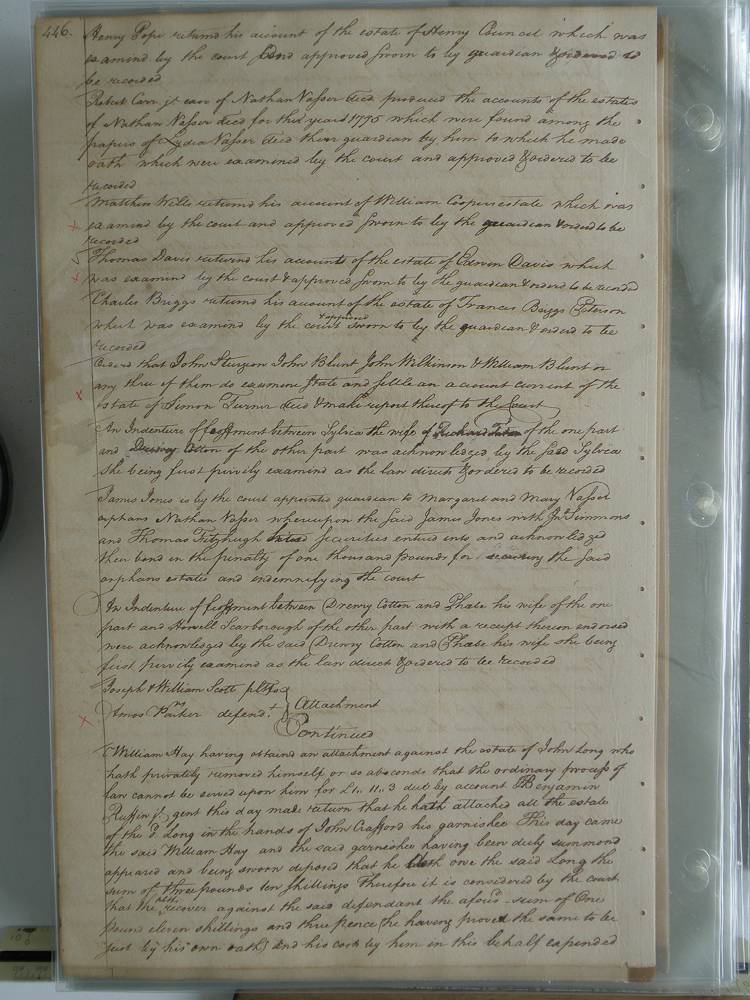 446.
Henry Pope returns his account of the estate of Henry Council which was
examind by the court and approved sworn to by guardian & ordered to
be recorded
Robert Carr jr exor of Nathan Vasser decd produced the accounts of the estates
of Nathan Vasser decd for the year 1775 which were found among the
papers of Lydia Vasser decd their guardian by him to which he made
oath which were examined by the court and approved & ordered to be
recorded
Matthew Wills returns his account of William Coopers estate which was
examind by the court and approved sworn to by the guardian & orderd to be
recorded
Thomas Davis returns his accounts of the estate of Edwin Davis which
was examind by the court & approved sworn to by the guardian & orderd to be recorded
Charles Briggs returns his account of the estate of Frances Briggs Peterson
& approved
which was examind by the court sworn to by the guardian & orderd to be
recorded
Orderd that John Sturgeon John Blunt John Wilkinson & William Blunt or
any three of them do examine state and settle an account current of the
estate of Simon Turner decd & make report thereof to the Court
An Indenture of feoffment between Sylvia the wife of of the one part
and Cotton of the other part was acknowledged by the said Sylvia
she being first privily examind as the law directs & ordered to be recorded
James Jones is by the court appointed guardian to Margaret and Mary Vasser
orphans Nathan Vasser whereupon the said James Jones with Jno. Simmons
and Thomas Fitzhugh securities entred into and acknowledged
their bond in the penalty of one thousand pounds for securing the said
orphans estates and endemnifying the court
An Indenture of feoffment between Drewry Cotton and Phebe his wife of the one
part and Howell Scarborough of the other part with a receipt thereon endorsed
were acknowledged by the said Drewry Cotton and Phebe his wife she being
first privily examind as the law directs & ordered to be recorded
Joseph & William Scott pltfs
Attachment
Amos Parker defendt.
Continued
William Hay having obtaind an attachment against the estate of John Long who
hath privately removed himself or so absconds that the ordinary process of
law cannot be served upon him for £1.. 11.. 3 due by account Benjamin
Ruffin jr. gent this day made return that he hath attached all the estate
of the sd Long in the hands of John Crafford his garnishee This day came
the said William Hay and the said garnishee having been duly summond
appeared and being sworn deposed that he doth owe the said Long the
sum of three pounds ten shillings Therefore it is considered by the court
that the pltf recover against the said defendant the aforesd. sum of One
pound eleven shillings and three pence (he having proved the same to be
just by his own oath) and his costs by him in this behalf expended